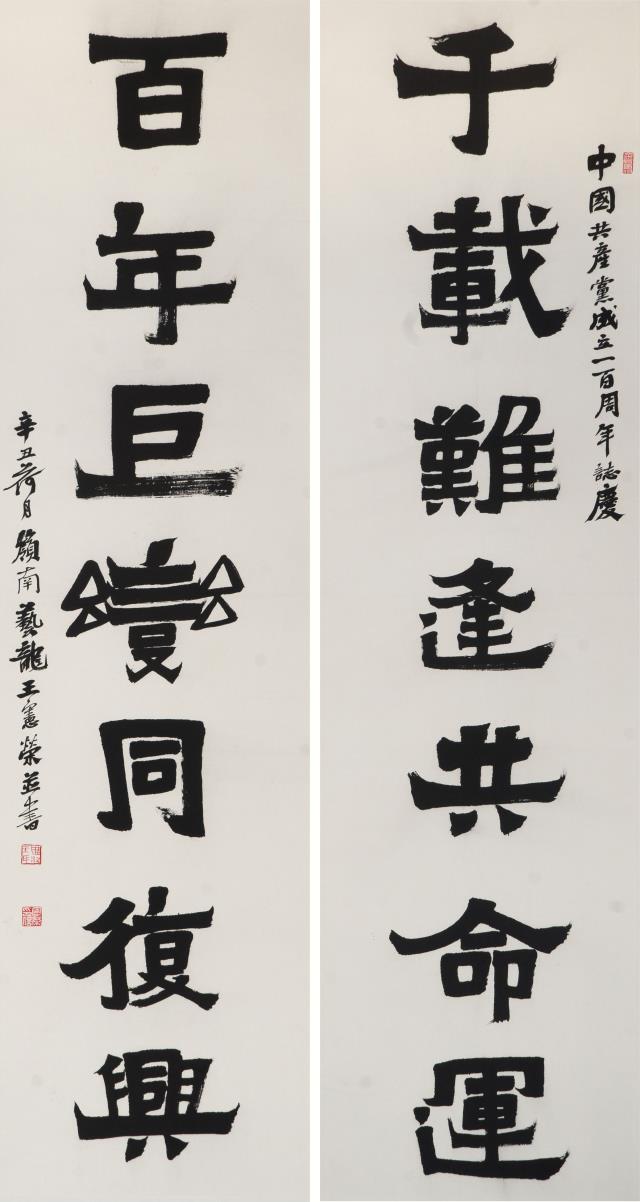 中國共產黨成立一百周年誌慶
千載難逢共命運
百年巨變同復興
辛丑荷月 南藝龍王憲榮並書